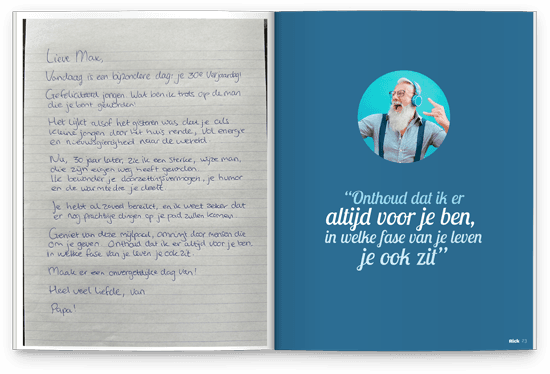 Lieve Max,
Vandaag is een bijzondere dag: je 30e Verjaardag!
Gefeliciteerd jongen. Wat ben ik trots op de man
die je bent geworden!
Het lijkt alsof het gisteren was, dat je als
kleine jongen door het huis rende, vol energie
en nieuwsgierigheid naar de wereld.
Nu, 30 jaar later, zie ik een sterke, wijze man,
die zijn eigen weg heeft gevonden.
We bewonder je doorzettingsvermogen, je humor
en de warmte die je deelt.
Je hebt al zoveel bereikt, en ik weet zeker dat
er nog prachtige dingen op je pad zullen komen.
Geniet van deze mijlpaal, omringd door mensen die
om je geven. Onthoud dat ik er altijd voor je ben.
In welke fase van je leven je ook zit.
Maak er een onvergetelijke dag van!
Heel veel liefde, van
Papa!
“Onthoud dat ik er
altijd voor je ben,
in welke fase van je leven
je ook zit”
Rick 73